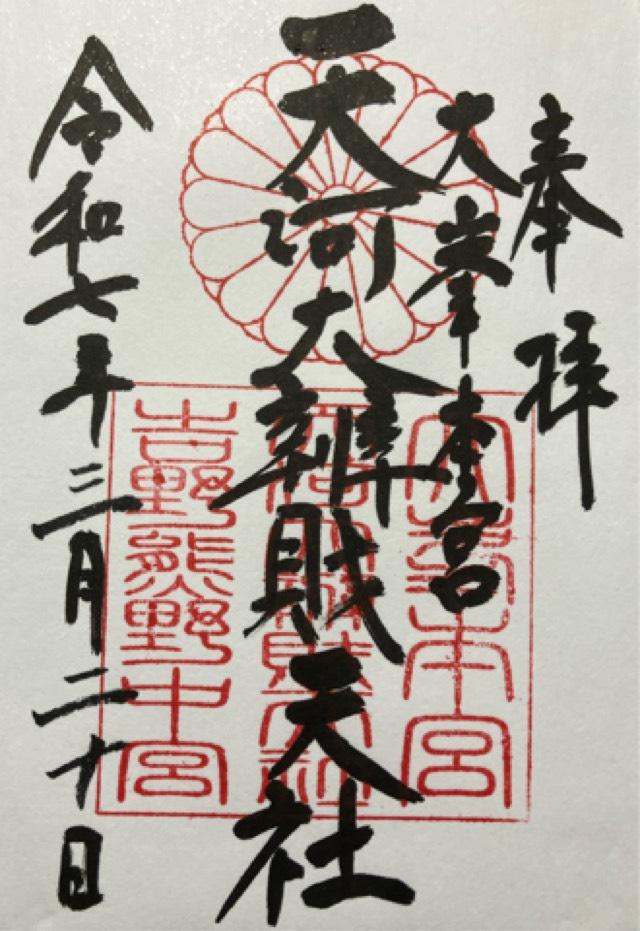 奉拝
大峯本宮
天河大辨財天社
令和七年三月二十日
大峯本宮
天河大辨財天社
吉野熊野中宮